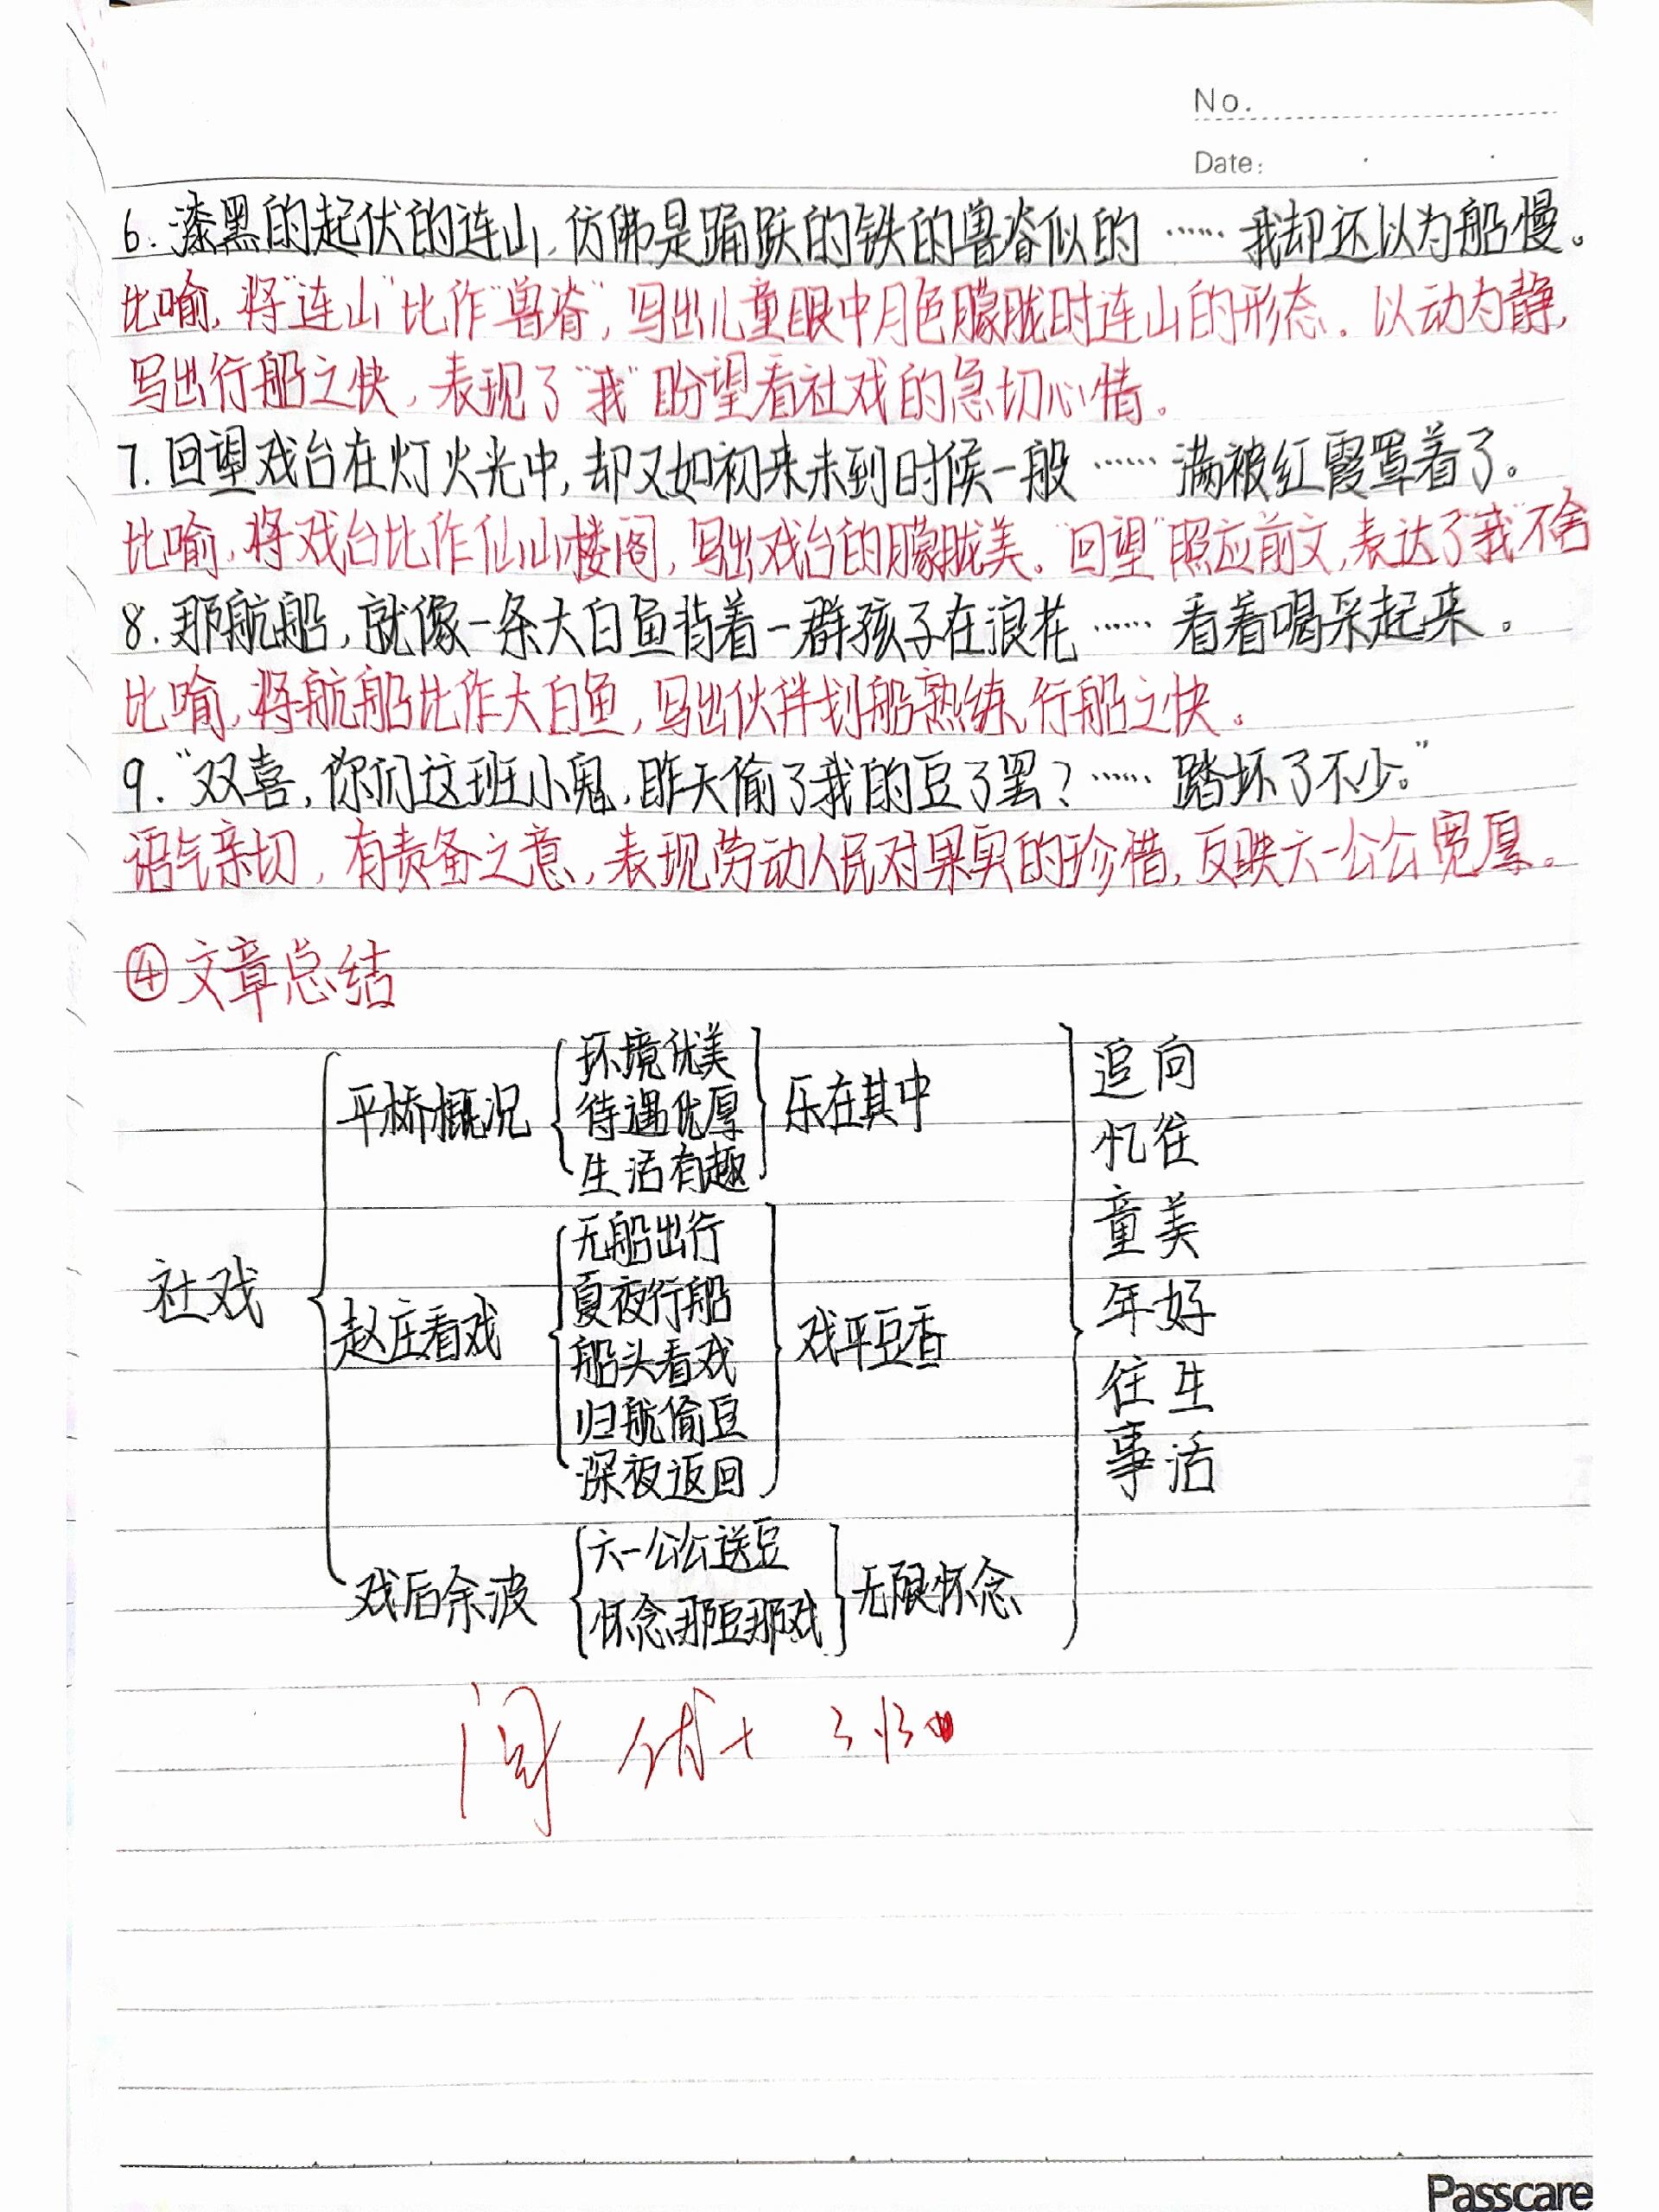 No.
Date:
6. 漆黑的起伏的连山,仿佛是踊跃的铁的兽脊似的……我却还以为船慢。
比喻,将"连山"比作"兽脊",写出儿童眼中月色朦胧时连山的形态。以动为静,
写出行船之快,表现了"我"盼望看社戏的急切心情。
7. 回望戏台在灯火光中,却又如初来未到时候一般……满被红霞罩着了。
比喻,将戏台比作仙山楼阁,写出戏台的朦胧美。"回望"照应前文,表达了"我"不舍
8. 那航船,就像一条大白鱼背着一群孩子在浪花……看着喝采起来。
比喻,将航船比作大白鱼,写出伙伴划船熟练,行船之快。
9. "双喜,你们这班小鬼,昨天偷了我的豆了罢?……踏坏了不少。"
语气亲切,有责备之意,表现劳动人民对果实的珍惜,反映六一公公宽厚。
④文章总结
社戏
平桥概况
环境优美
待遇优厚
生活有趣
乐在其中
赵庄看戏
无船出行
夏夜行船
船头看戏
归航偷豆
深夜返回
戏平豆香
戏后余波
六一公公送豆
怀念那豆那戏
无限怀念
追忆童年往事
向往美好生活
阅
Passcare